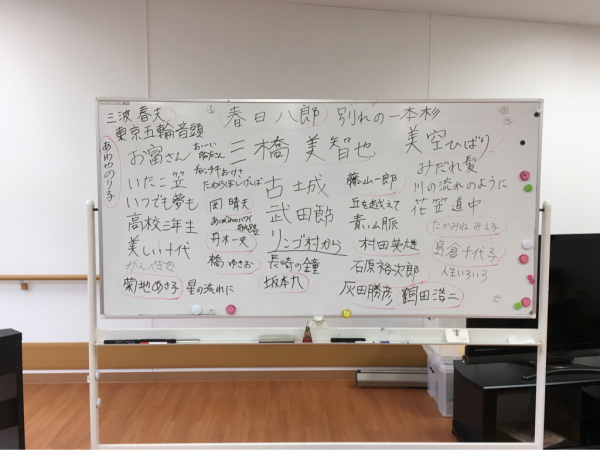 三波春夫
東京五輪音頭
あわやのり子
お富さん
おーい船方さん
いたこ笠
チャンチキおけさ
たわらぼしげんば
いつでも夢も
高校三年生
美しい十代
菊地あき子
星の流れに
春日八郎
別れの一本杉
三橋美智也
古城
武田節
リンゴ村から
岡晴夫
あこがれのハワイ航路
舟木一夫
橋ゆきお
長崎の鐘
坂本九
藤山一郎
丘を越えて
青い山脈
村田英雄
石原裕次郎
灰田勝彦
鶴田浩二
美空ひばり
みだれ髪
川の流れのように
花笠道中
たかみねみえ子
島倉千代子
人生いろいろ